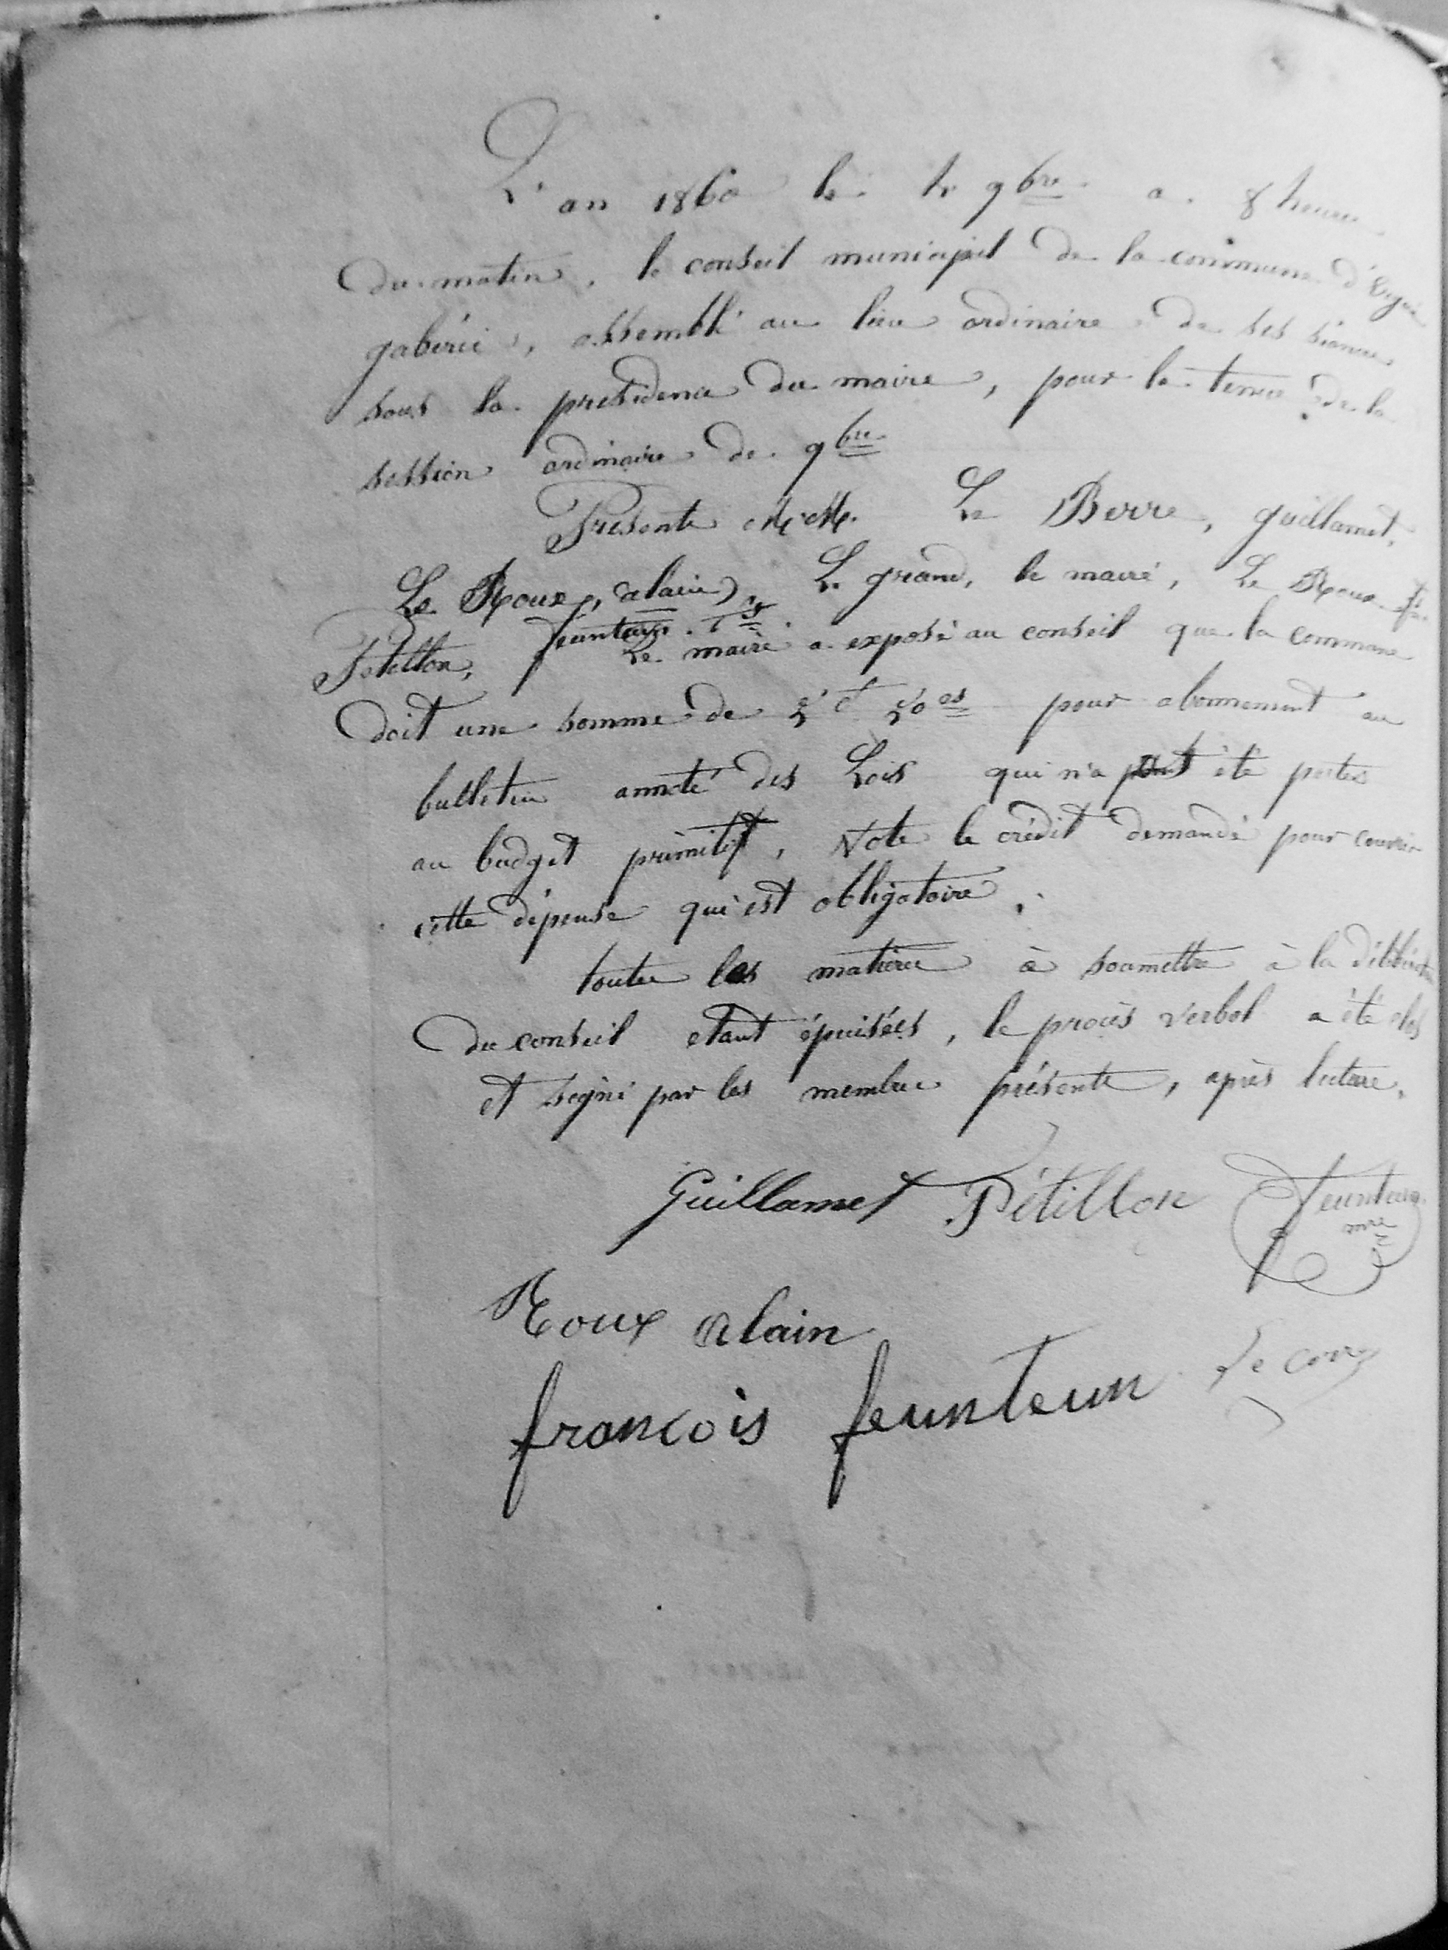 L'an 1860 le 9bre a 8 heures
du matin, le conseil municipal de la commune d'Ergué
gabéric, assemblé au lieu ordinaire de ses séances
sous la presidence du maire, pour la tenue de la
session ordinaire de 9bre
Présents MM. Le Berre, guillamet,
Le Roux, alain, Le grand, le maire, Le Roux
Petillon, feunteun
Le maire a exposé au conseil que la commune
doit une somme de pour abonnement au
bulletin annoté des Lois qui n'a point été portée
au budget primitif, Vote le crédit demandé pour couvrir
cette dépense qui est obligatoire.
toutes les matières à soumettre à la délibération
du conseil etant épuisées, le procès verbal a été clos
et signé par les membres présents, après lecture.
Guillamet Pétillon feunteun
mre
Roux alain
Le Corre
francois feunteun